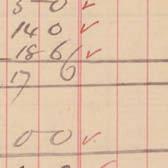 5 0 ✓
14 0 ✓
18 6 ✓
17 6
0 0 ✓